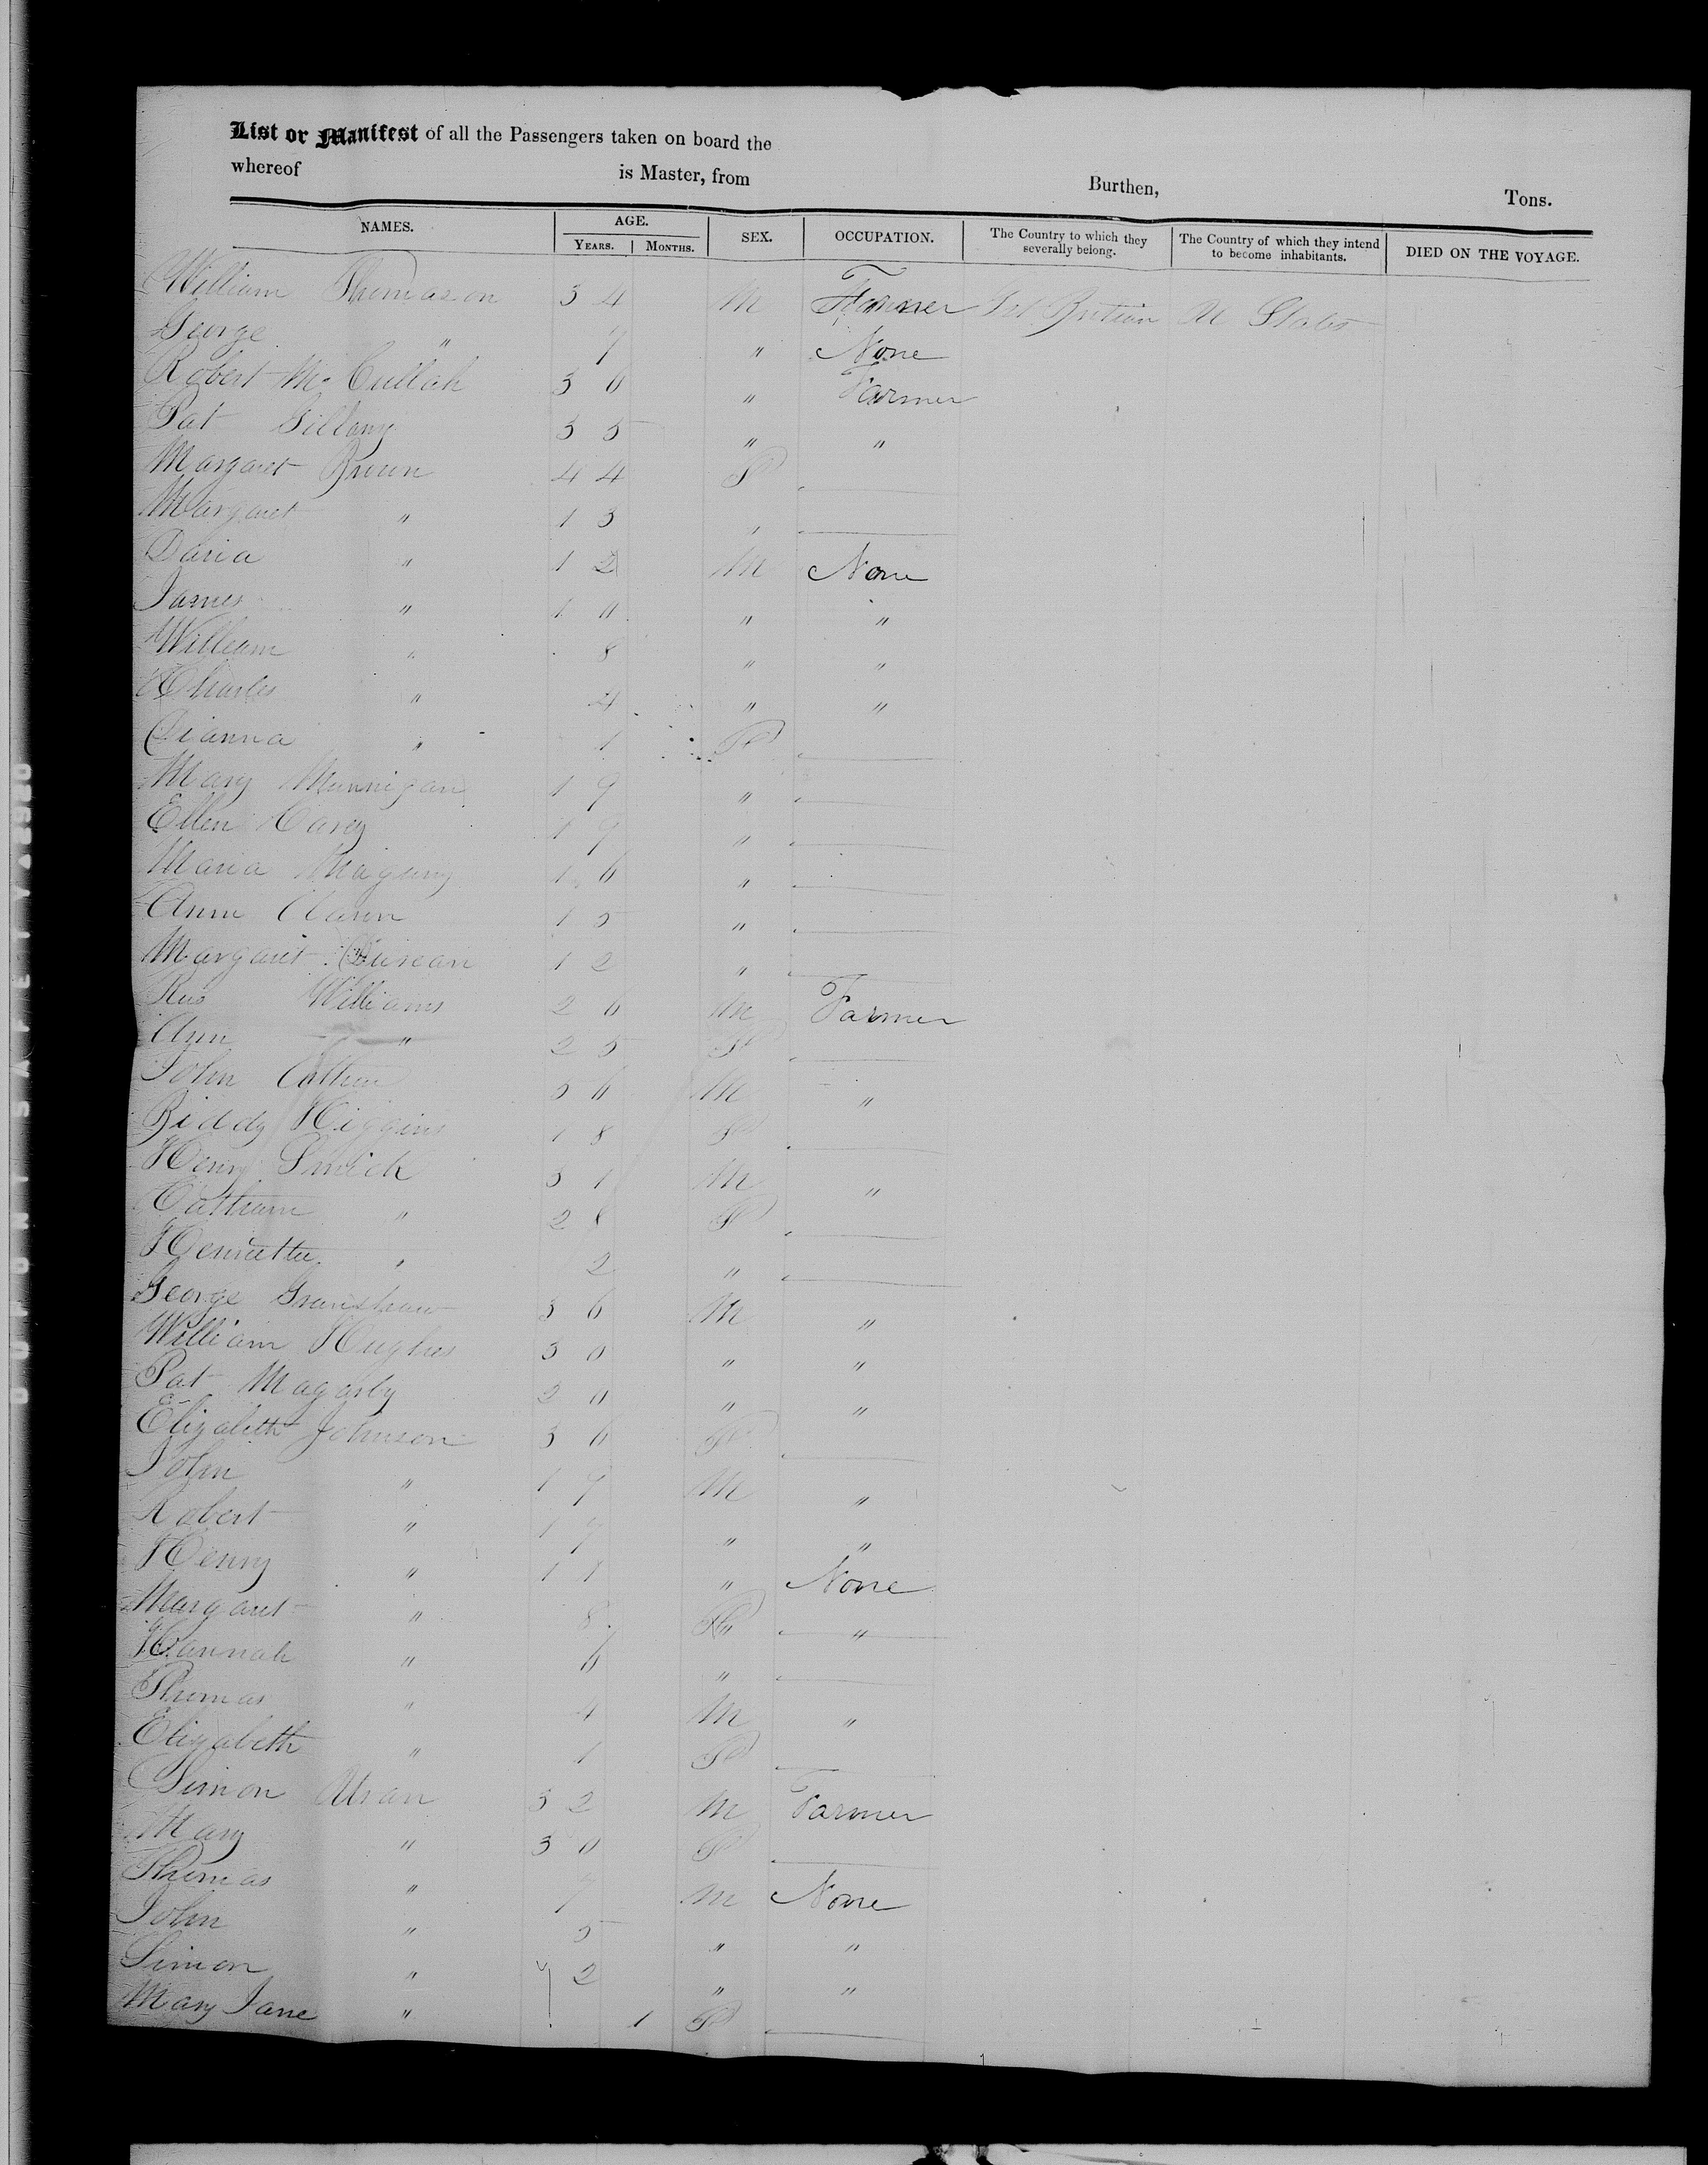 List or Manifest of all the Passengers taken on board the
whereof is Master, from Burthen, Tons.
NAMES. AGE. YEARS. MONTHS. SEX. OCCUPATION. The Country to which they severally belong. The Country of which they intend to become inhabitants. DIED ON THE VOYAGE.
William Thomason 34 M Farmer Gt Britian U States
George " 7 " None
Robert McCullah 30 " Farmer
Pat Gillany 35 " "
Margaret Brown 44 F
Margaret " 13 "
David " 12 M None
James " 10 " "
William " 8 " "
Charles " 4 " "
Dianna " 1 F
Mary Munnigan 19 "
Ellen Carey 19 "
Maria 16 "
Ann 15 "
Margaret Duncan 12 "
Williams 26 M Farmer
Ann " 25 F
John M "
Biddy Higgins 18 F
Henry Smith 31 M "
" 28 F
Henrietta " 2 "
George 36 M "
William Hughes 30 " "
Pat 20 " "
Elizabeth Johnson 36 F
John " 19 M "
Robert " 17 " "
Henry " 11 " None
Margaret " 8 F "
Hannah " 6 "
Thomas " 4 M "
Elizabeth " 1 F
Simon 32 M Farmer
Mary " 30 F
Thomas " 7 M None
John " 5 " "
Simon " 2 " "
Mary Jane " 1 F